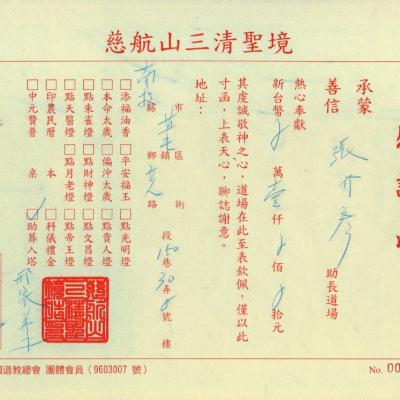 慈航山三清聖境
承蒙
善信 張介彥 助長道場
熱心奉獻
新台幣 萬壹仟 佰 拾元
其虔誠敬神之心，道場在此至表欽佩，僅以此
寸函，上表天心，聊誌謝意。
地址：
南投 縣市 草屯 鄉鎮區 路街 段150巷30弄 號 樓
□添福油香 □平安福玉 □點光明燈
□本命太歲 □偏沖太歲 □點貴人燈
□點朱雀燈 □點財神燈 □點文昌燈
□點天醫燈 □點月老燈 □點帝王燈
□印農民曆 本 □科儀禮金
□中元贊普 桌 □助葬入塔
國道教總會 團體會員（9603007 號）
No. 00